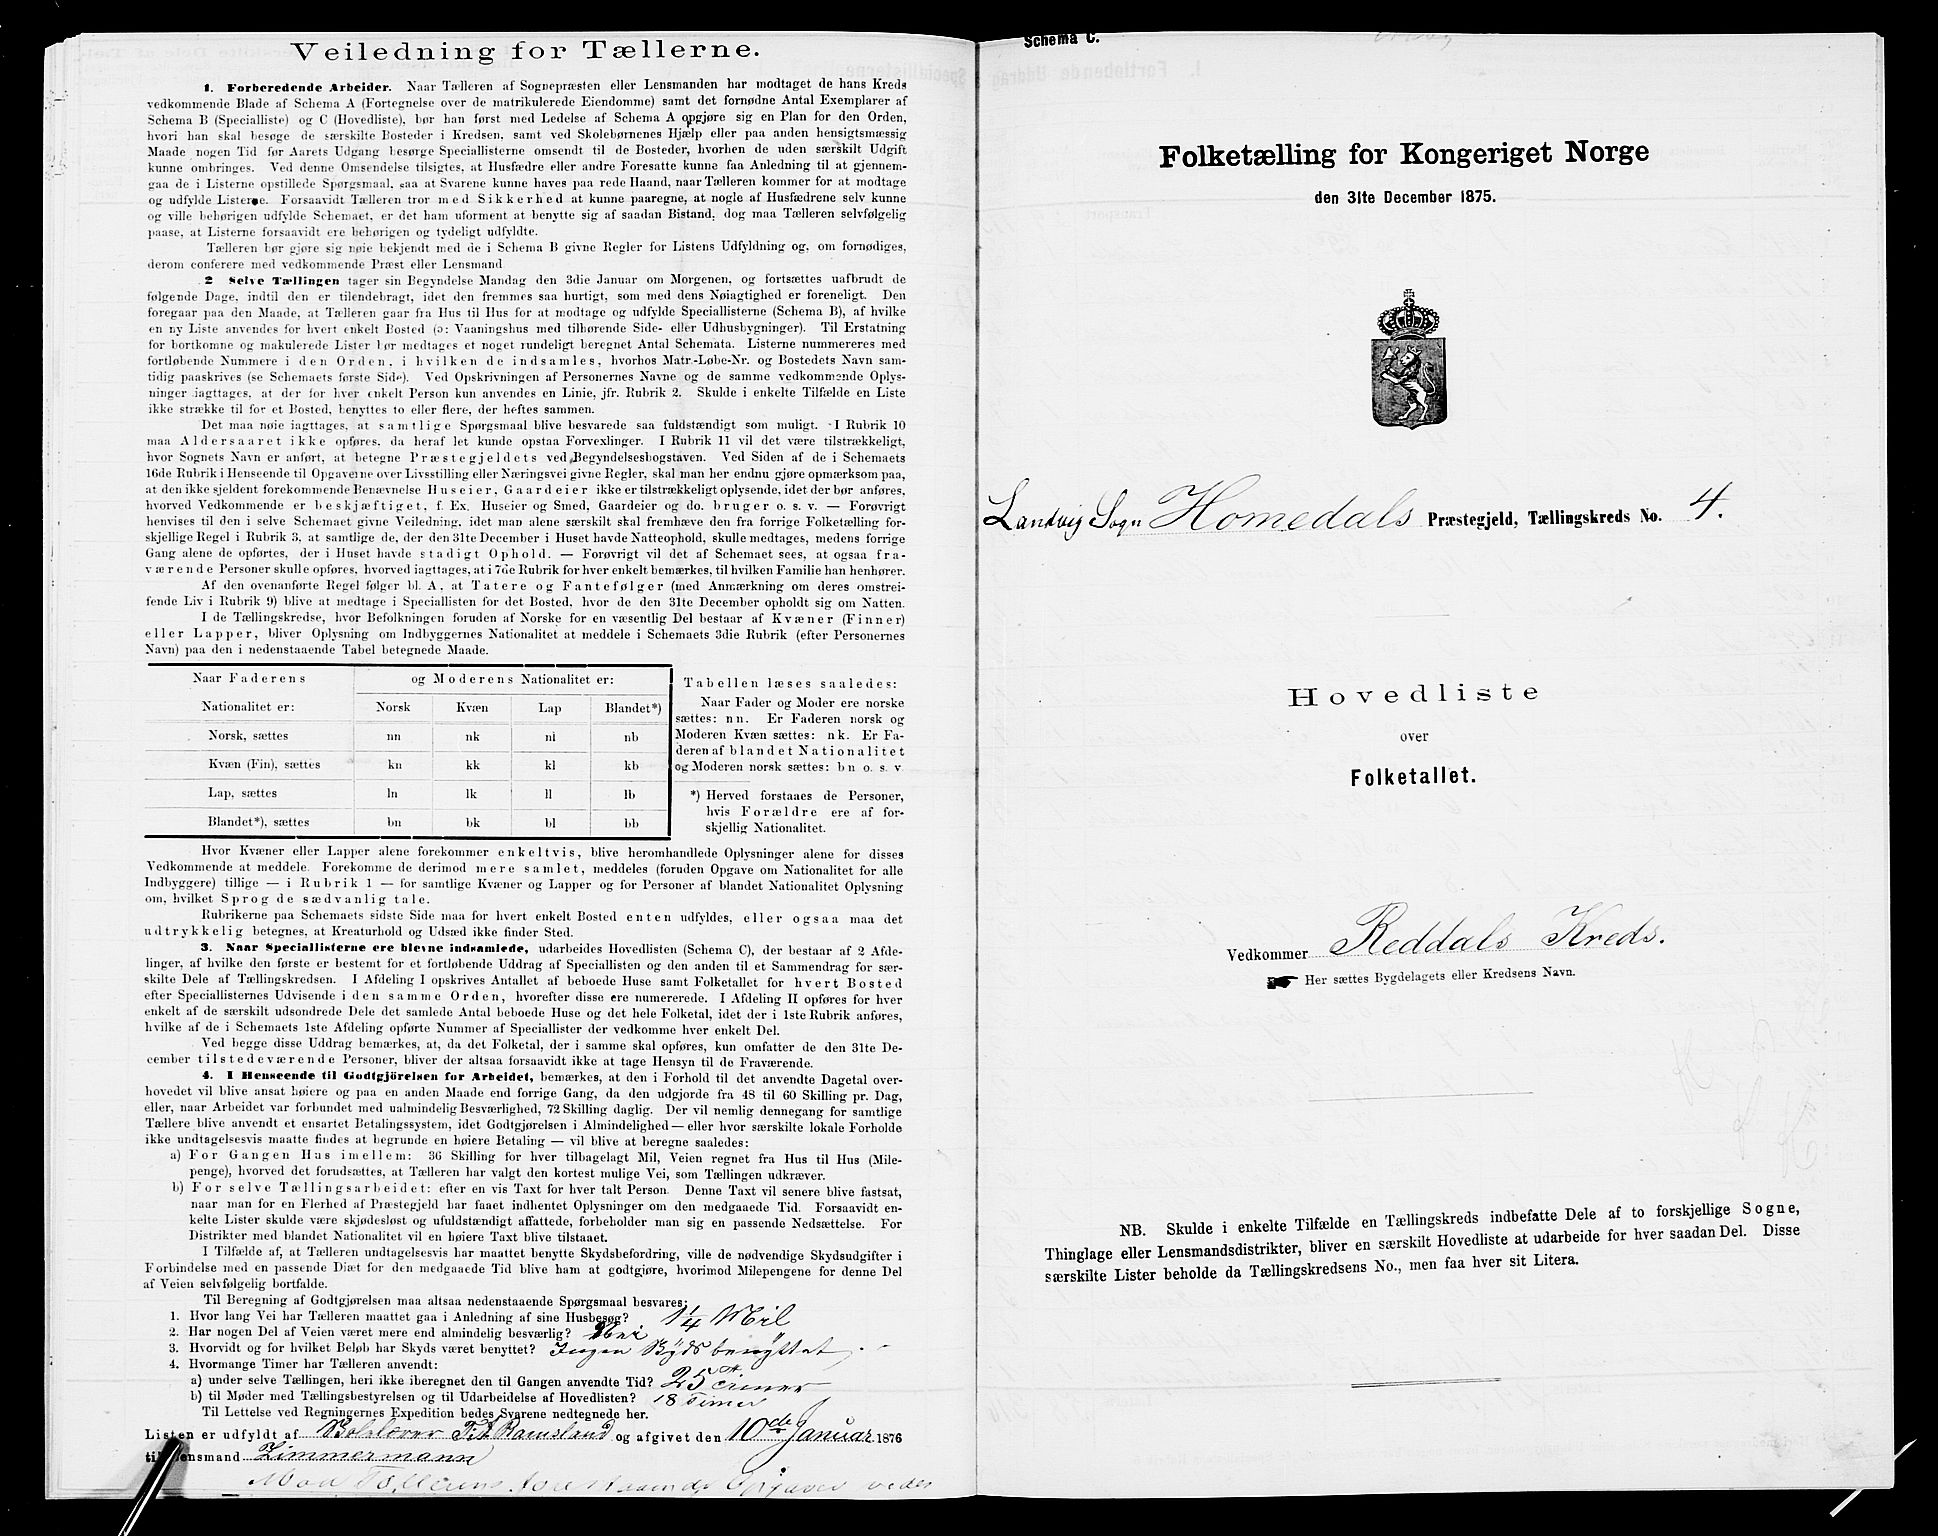 Veiledning for Tællerne.
1. Forberedende Arbeider. Naar Tælleren af Sognepræsten eller Lensmanden har modtaget de hans Kreds
vedkommende Blade af Schema A (Fortegnelse over de matrikulerede Eiendomme) samt det fornødne Antal Exemplarer af
Schema B (Specialliste) og C (Hovedliste), bør han først med Ledelse af Schema A opgjøre sig en Plan for den Orden,
hvori han skal besøge de særskilte Bosteder i Kredsen, samt ved Skolebørnenes Hjælp eller paa anden hensigtsmæssig
Maade nogen Tid før Aarets Udgang besørge Speciallisterne omsendt til de Bosteder, hvorhen de uden særskilt Udgift
kunne ombringes. Ved denne Omsendelse tilsigtes, at Husfædre eller andre Foresatte kunne faa Anledning til at gjennem-
gaa de i Listerne opstillede Spørgsmaal, saa at Svarene kunne haves paa rede Haand, naar Tælleren kommer for at modtage
og udfylde Listerne. Forsaavidt Tælleren tror med Sikkerhed at kunne paaregne, at nogle af Husfædrene selv kunne
og ville behørigen udfylde Schemaet, er det ham uforment at benytte sig af saadan Bistand, dog maa Tælleren selvfølgelig
paase, at Listerne forsaavidt ere behørigen og tydeligt udfyldte.
Tælleren bør gjøre sig nøie bekjendt med de i Schema B givne Regler for Listens Udfyldning og, om fornødiges,
derom conferere med vedkommende Præst eller Lensmand
2 Selve Tællingen tager sin Begyndelse Mandag den 3die Januar om Morgenen, og fortsættes uafbrudt de
følgende Dage, indtil den er tilendebragt, idet den fremmes saa hurtigt, som med dens Nøiagtighed er foreneligt. Den
foregaar paa den Maade, at Tælleren gaar fra Hus til Hus for at modtage og udfylde Speciallisterne (Schema B), af hvilke
en ny Liste anvendes for hvert enkelt Bosted (ɔ: Vaaningshus med tilhørende Side- eller Udhusbygninger). Til Erstatning
for bortkomne og makulerede Lister bør medtages et noget rundeligt beregnet Antal Schemata. Listerne nummereres med
fortløbende Nummere i den Orden, i hvilken de indsamles, hvorhos Matr.-Løbe-Nr. og Bostedets Navn sam-
tidig paaskrives (se Schemaets første Side). Ved Opskrivningen af Personernes Navne og de samme vedkommende Oplys-
ninger iagttages, at der for hver enkelt Person kun anvendes en Linie, jfr. Rubrik 2. Skulde i enkelte Tilfælde en Liste
ikke strække til for et Bosted, benyttes to eller flere, der heftes sammen.
Det maa nøie iagttages, at samtlige Spørgsmaal blive besvarede saa fuldstændigt som muligt. I Rubrik 10
maa Aldersaaret ikke opføres, da heraf let kunde opstaa Forvexlinger. I Rubrik 11 vil det være tilstrækkeligt,
hvor Sognets Navn er anført, at betegne Præstegjeldets ved Begyndelsesbogstaven. Ved Siden af de i Schemaets
16de Rubrik i Henseende til Opgaverne over Livsstilling eller Næringsvei givne Regler, skal man her endnu gjøre opmærksom paa,
at den ikke sjeldent forekommende Benævnelse Huseier, Gaardeier ikke er tilstrækkeligt oplysende, idet der bør anføres,
hvorved Vedkommende er beskjæftiget, f. Ex. Huseier og Smed, Gaardeier og do. bruger o. s. v. — Forøvrigt
henvises til den i selve Schemaet givne Veiledning, idet man alene særskilt skal fremhæve den fra forrige Folketælling for-
skjellige Regel i Rubrik 3, at samtlige de, der den 31te December i Huset havde Natteophold, skulle medtages, medens forrige
Gang alene de opførtes, der i Huset havde stadigt Ophold. — Forøvrigt vil det af Schemaet sees, at ogsaa fra-
værende Personer skulle opføres, hvorved iagttages, at i 7de Rubrik for hver enkelt bemærkes, til hvilken Familie han henhører.
Af den ovenanførte Regel følger bl. A, at Tatere og Fantefølger (med Anmærkning om deres omstrei-
fende Liv i Rubrik 9) blive at medtage i Speciallisten for det Bosted, hvor de den 31te December opholdt sig om Natten.
I de Tællingskredse, hvor Befolkningen foruden af Norske for en væsentlig Del bestaar af Kvæner (Finner)
eller Lapper, bliver Oplysning om Indbyggernes Nationalitet at meddele i Schemaets 3die Rubrik (efter Personernes
Navn) paa den i nedenstaaende Tabel betegnede Maade.
Naar Faderens og Moderens Nationalitet er:
Nationalitet er: Norsk Kvæn Lap Blandet*)
Norsk, sættes nn nk nl nb
Kvæn (Fin), sættes kn kk kl kb
Lap, sættes ln lk ll lb
Blandet*), sættes bn bk bl bb
Tabellen læses saaledes:
Naar Fader og Moder ere norske
sættes: nn. Er Faderen norsk og
Moderen Kvæn sættes: nk. Er Fa-
deren af blandet Nationalitet
og Moderen norsk sættes: bn o. s. v.
*) Herved forstaaes de Personer,
hvis Forældre ere af for-
skjellig Nationalitet.
Hvor Kvæner eller Lapper alene forekommer enkeltvis, blive heromhandlede Oplysninger alene for disses
Vedkommende at meddele. Forekomme de derimod mere samlet, meddeles (foruden Opgave om Nationalitet for alle
Indbyggere) tillige — i Rubrik 1 — for samtlige Kvæner og Lapper og for Personer af blandet Nationalitet Oplysning
om, hvilket Sprog de sædvanlig tale.
Rubrikerne paa Schemaets sidste Side maa for hvert enkelt Bosted enten udfyldes, eller ogsaa maa det
udtrykkelig betegnes, at Kreaturhold og Udsæd ikke finder Sted.
3. Naar Speciallisterne ere blevne indsamlede, udarbeides Hovedlisten (Schema C), der bestaar af 2 Afde-
linger, af hvilke den første er bestemt for et fortløbende Uddrag af Speciallisten og den anden til et Sammendrag for sær-
skilte Dele af Tællingskredsen. I Afdeling I opskrives Antallet af beboede Huse samt Folketallet for hvert Bosted
efter Speciallisternes Udvisende i den samme Orden, hvorefter disse ere numererede. I Afdeling II opføres for hver
enkelt af de særskilt udsondrede Dele det samlede Antal beboede Huse og det hele Folketal, idet der i 1ste Rubrik anføres,
hvilke af de i Schemaets 1ste Afdeling opførte Nummer af Speciallister der vedkomme hver enkelt Del.
Ved begge disse Uddrag bemærkes, at, da det Folketal, der i samme skal opføres, kun omfatter de den 31te De-
cember tilstedeværende Personer, bliver der altsaa forsaavidt ikke at tage Hensyn til de Fraværende.
4. I Henseende til Godtgjörelsen for Arbeidet, bemærkes, at den i Forhold til det anvendte Dagetal over-
hovedet vil blive ansat høiere og paa en anden Maade end forrige Gang, da den udgjorde fra 48 til 60 Skilling pr. Dag,
eller, naar Arbeidet var forbundet med ualmindelig Besværlighed, 72 Skilling daglig. Der vil nemlig dennegang for samtlige
Tællere blive anvendt et ensartet Betalingssystem, idet Godtgjørelsen i Almindelighed — eller hvor særskilte lokale Forholde
ikke undtagelsesvis maatte findes at begrunde en høiere Betaling — vil blive at beregne saaledes:
a) For Gangen Hus imellem: 36 Skilling for hver tilbagelagt Mil, Veien regnet fra Hus til Hus (Mile-
penge), hvorved det forudsættes, at Tælleren har valgt den kortest mulige Vei, som Tællingen udkræver.
b) For selve Tællingsarbeidet: efter en vis Taxt for hver talt Person. Denne Taxt vil senere blive fastsat,
naar man for en Flerhed af Præstegjeld har faaet indhentet Oplysninger om den medgaaede Tid. Forsaavidt en-
kelte Lister skulde være skjødesløst og ufuldstændigt affattede, forbeholder man sig en passende Nedsættelse. For
Distrikter med blandet Nationalitet vil en høiere Taxt blive tilstaaet.
I Tilfælde af, at Tælleren undtagelsesvis har maattet benytte Skydsbefordring, ville de nødvendige Skydsudgifter i
Forbindelse med en passende Diæt for den medgaaede Tid blive ham at godtgjøre, hvorimod Milepengene for denne Del
af Veien selvfølgelig bortfalde.
Til Beregning af Godtgjørelsen maa altsaa nedenstaaende Spørgsmaal besvares;
1. Hvor lang Vei har Tælleren maattet gaa i Anledning af sine Husbesøg? 1 1/4 Mil
2. Har nogen Del af Veien været mere end almindelig besværlig? Nei
3. Hvorvidt og for hvilket Beløb har Skyds været benyttet? Ingen Skyds benyttet.
4. Hvormange Timer har Tælleren anvendt:
a) under selve Tællingen, heri ikke iberegnet den til Gangen anvendte Tid? 25 Timer
b) til Møder med Tællingsbestyrelsen og til Udarbeidelse af Hovedlisten? 18 Timer
Til Lettelse ved Regningernes Expedition bedes Svarene nedtegnede her.
Listen er udfyldt af Ramsland og afgivet den 10de Januar 1876
til Lensmand Zimmermann
Schema C.
Folketælling for Kongeriget Norge
den 31te December 1875.
Landvig Sogn Homedals Præstegjeld, Tællingskreds No. 4.
Hovedliste
over
Folketallet.
Vedkommer Reddals Kreds.
Her sættes Bygdelagets eller Kredsens Navn.
NB. Skulde i enkelte Tilfælde en Tællingskreds indbefatte Dele af to forskjellige Sogne,
Thinglage eller Lensmandsdistrikter, bliver en særskilt Hovedliste at udarbeide for hver saadan Del. Disse
særskilte Lister beholde da Tællingskredsens No., men faa hver sit Litera.